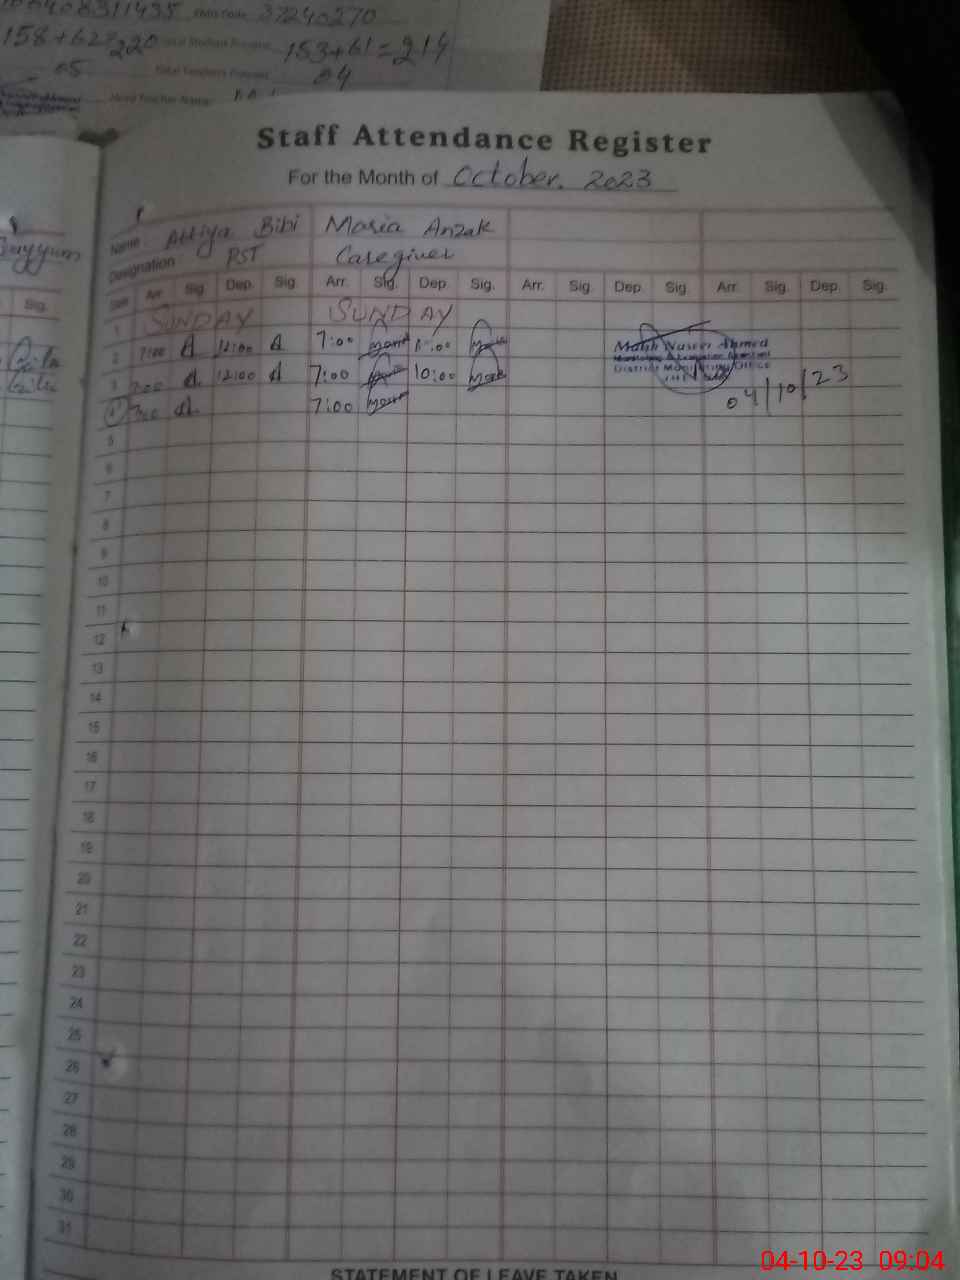 EMIS Code 37240270
158+62=220 153+61=214
05 04
Head Teacher Name
Staff Attendance Register
For the Month of October. 2023
Name Attiya Bibi Maria Anzak
Designation PST Caregiver
Sig.
Date Arr. Sig. Dep. Sig. Arr. Sig. Dep. Sig. Arr. Sig. Dep. Sig. Arr. Sig. Dep. Sig.
1 SUNDAY SUNDAY
2 7:00 A 12:00 A 7:00
3 7:00 A 12:00 A 7:00 10:00
4 7:00 A 7:00
Malik Naseer Ahmed
District Monitoring Office
04/10/23
5
6
7
8
9
10
11
12
13
14
15
16
17
18
19
20
21
22
23
24
25
26
27
28
29
30
31
STATEMENT OF LEAVE TAKEN
04-10-23 09:04